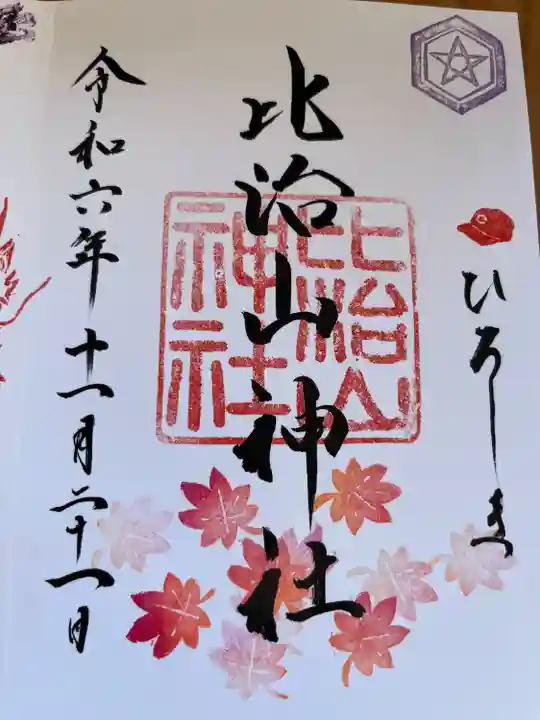 ひろしま
比治山神社
比治山神社
令和六年十一月二十一日